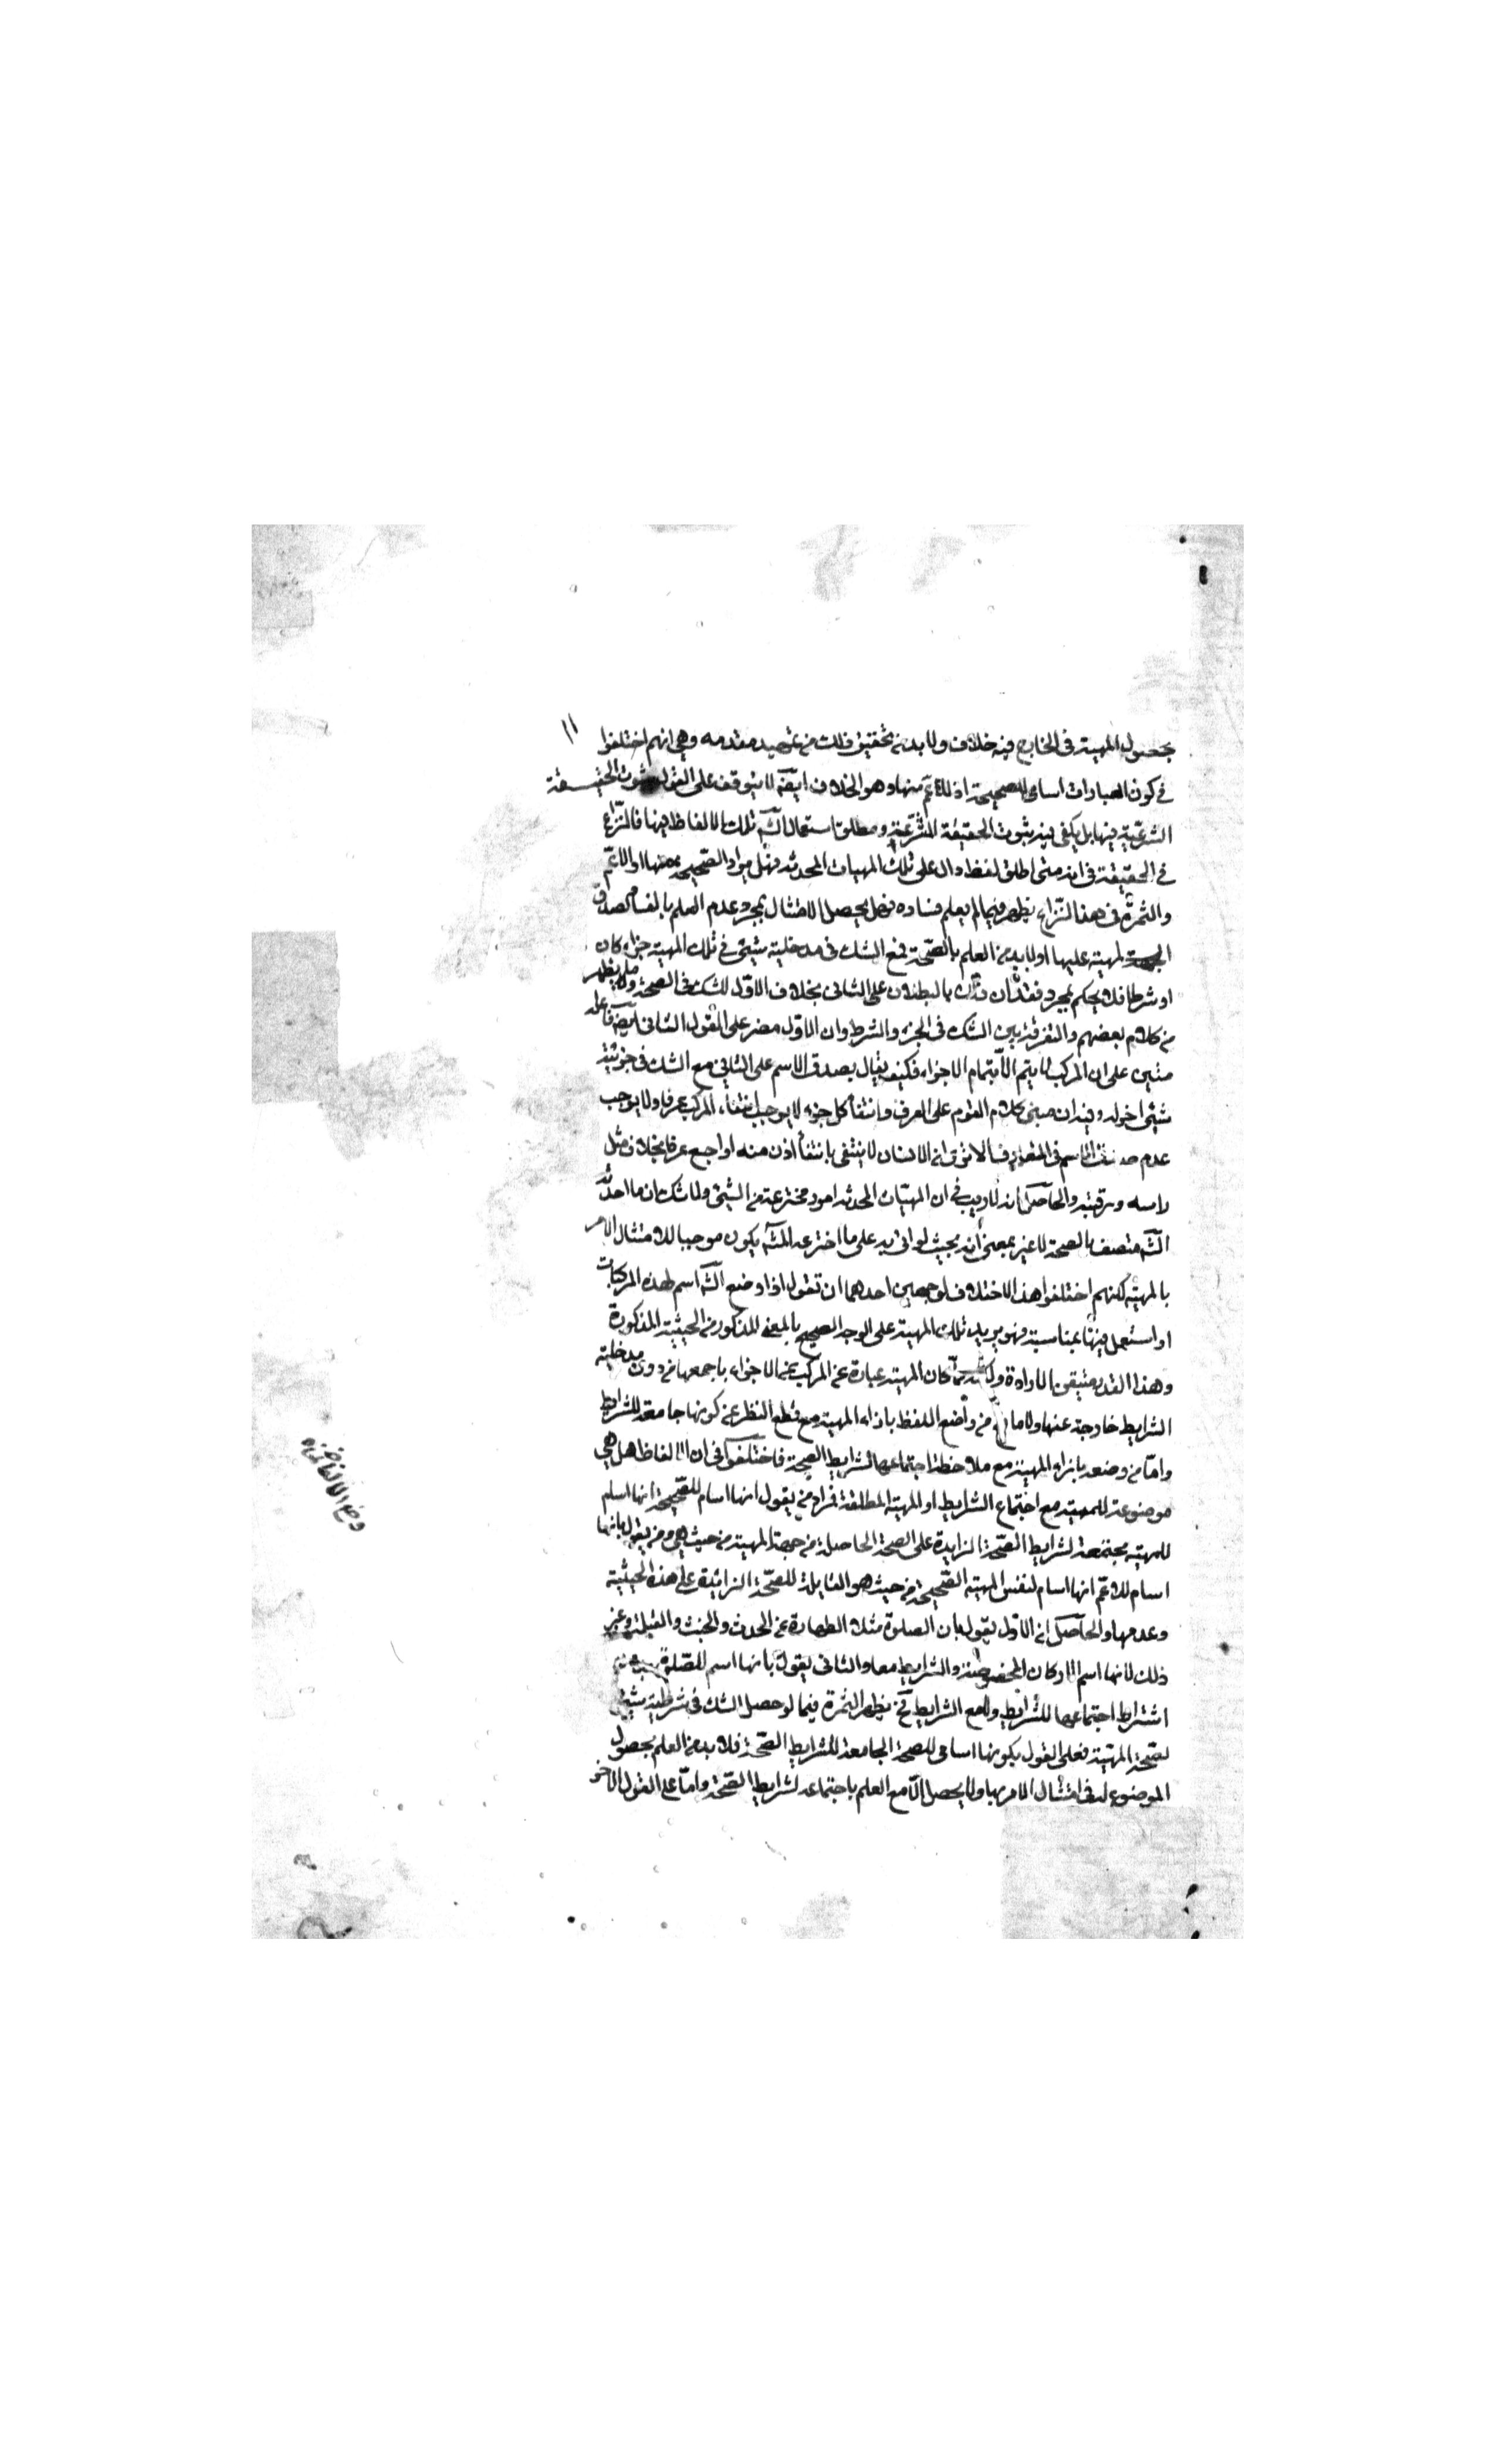 ١١
بحصول المهية فى الخارج فيه خلاف ولا بد من تحقيق ذلك من تمهيد مقدمه وهى انهم اختلفوا
فى كون العبادات اسامى للصحيحة او للاعم منها وهو الخلاف ايضا لا يتوقف على القول بثبوت الحقيقة
الشرعية فيها بل يكفى فيه ثبوت الحقيقة المتشرعية ومطلق استعمال الش تلك الالفاظ فيها فالنزاع
فى الحقيقة فى انه متى اطلق لفظ دال على تلك المهيات المحدثة فهل يراد الصحيحة منها او الاعم
والثمرة فى هذا النزاع يظهر فيما لم يعلم فساده فهل يحصل الامتثال بمجرد عدم العلم بالفساد لصدق
المهية عليها او لا بد من العلم بالصحة فمع الشك فى مدخلية شيئ فى تلك المهية جزاء كان
او شرطا فلا يحكم بمجرد فقدان ذلك بالبطلان على الثانى بخلاف الاول للشك فى الصحة وما يظهر
من كلام بعضهم والتفرقة بين الشك فى الجزء والشرط وان الاول مضر على القول الثانى ايضا
مبنين على ان المركب لا يتم الا بتمام الاجزاء فكيف يقال يصدق الاسم على الثانى مع الشك فى جزئية
شيئ اخر له وفيه ان مبنى كلام القوم على العرف وانتفاء كل جزء لا يوجب انتفاء المركب عرفا ولا يوجب
عدم صدق الاسم فى المتعارف الا ترى ان الانسان لا ينتفى بانتفاء اذن منه او اصبع عرفا بخلاف مثل
راسه ورقبته والحاصل انه لا ريب فى ان المهيات المحدثة امور مخترعة من الشيئ ولا شك ان ما احدثه
الش متصف بالصحة لا غير بمعنى انه بحيث لو اتى به على ما اخترعه الش يكون موجبا للامتثال الامر
بالمهية لكنهم اختلفوا هذا الاختلاف لوجهين احدهما ان تقول اذا وضع الش اسم لهذه المركبات
او استعمل فيها بمناسبة فهو يريد تلك المهية على الوجه الصحيح بالمعنى المذكور من الحيثية المذكورة
وهذا القدر متيقن الارادة كان المهية عبارة عن المركب عن الاجزاء باجمعها من دون مدخلية
الشرايط خارجة عنها من واضع اللفظ باذاء المهية مع قطع النظر عن كونها جامعة للشرايط
واما من وضعه بازاء المهية مع ملاحظة اجتماعها لشرايط الصحة فاختلفوا فى ان الالفاظ هل هى
موضوعة للمهية مع اجتماع الشرايط او المهية المطلقة فمراد من يقول انها اسام للصحيحة انها اسام
للمهية مجتمعة لشرايط الصحة الزايدة على الصحة الحاصلة من جهة المهية من حيث هى ومن يقول بانها
اسام للاعم انها اسام لنفس المهية الصحيحة من حيث هو القابلة للصحة الزائدة على هذه الحيثية
وعدمها والحاصل ان الاول يقول بان الصلوة مثلا الطهارة عن الحدث والخبث والقبلة وغير
ذلك لانها اسم الاركان المخصوصة والشرايط معا والثانى يقول بانها اسم للصلوة
اشتراط اجتماعها للشرايط ولا مع الشرايط فح يظهر الثمرة فيما لو حصل الشك فى شرطية شيئ
لصحة المهية فعلى القول بكونها اسامى للصحة الجامعة للشرايط الصحة فلا بد من العلم بحصول
الموضوع له فى امتثال الامر بها ولا يحصل الا مع العلم باجتماعه لشرايط الصحة واما على القول الاخر